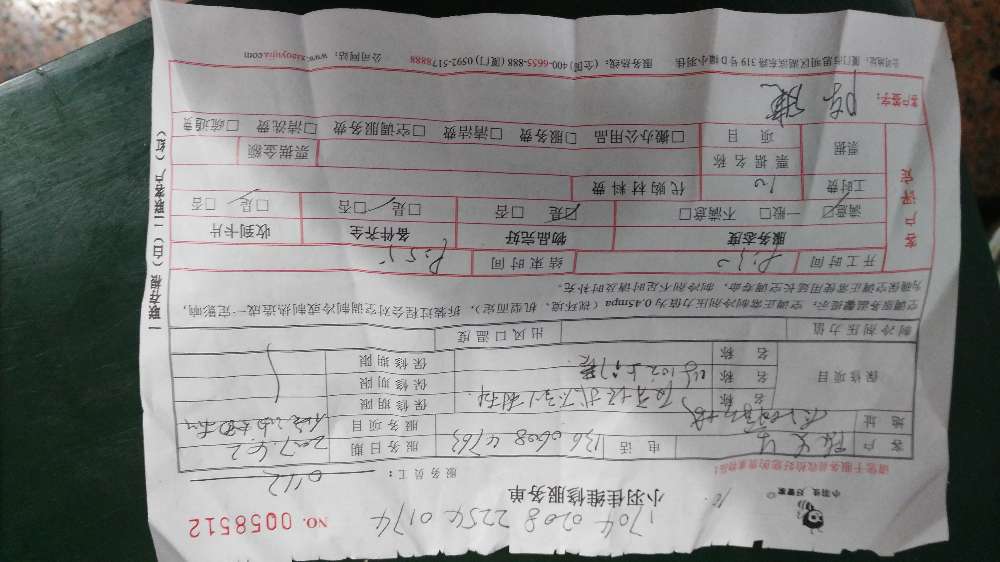 小羽佳 好管家
小羽佳维修服务单
NO. 0058512
1704 0208 2254 0174
请您于服务前收检好您的贵重物品！
服务员工： 0412
客户
电话 136 0608 4763
服务日期 2017.4.2
地址
服务项目
保修项目
名称
保修期限
名称
保修期限
名称
保修期限
制冷剂压力值
出风口温度
空调服务温馨提示：空调正常制冷剂压力值为0.45mpa（视环境、机型而定），拆装过程会对空调制冷或制热造成一定影响，
为确保空调正常使用延长空调寿命，制冷剂不足时请及时补充。
客户评定
开工时间 8:30
结束时间 8:55
服务态度
物品完好
备件齐全
收到卡片
☑满意 □一般 □不满意
☑是 □否
☑是 □否
☑是 □否
工时费 10
代购材料费
票据
票据名称
票据金额
项目
□搬办公用品 □服务费 □清洁费 □空调服务费 □清洗费 □疏通费
客户签字：
公司地址：厦门市思明区湖滨东路319号D幢小羽佳
服务热线：（全国）400-6655-888（厦门）0592-5178888
公司网站：www.xiaoyujia.com
一联存根（白）二联客户（红）